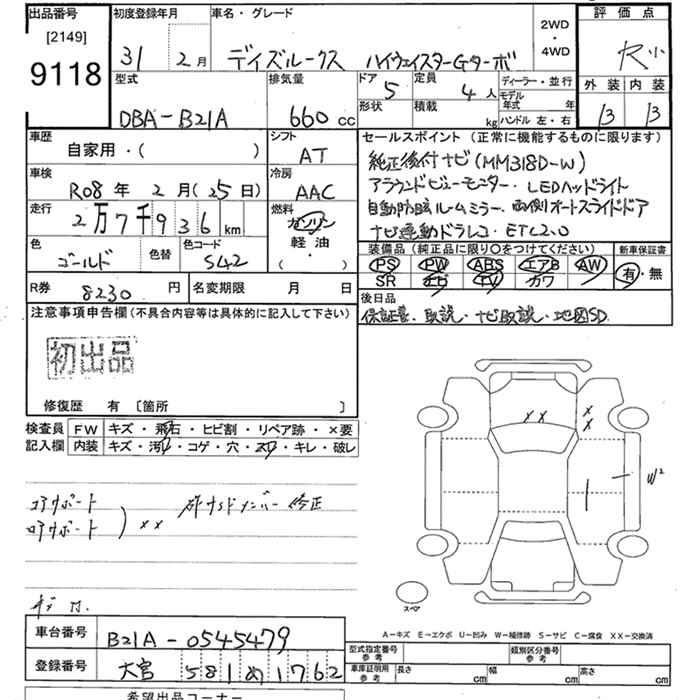 出品番号 初度登録年月 車名・グレード 評価点
[2149]
9118
31 2月 デイズルークス ハイウェイスターGターボ 2WD・4WD R小
型式 排気量 ドア 5 定員 4人 ディーラー・並行 外装 内装
DBA-B21A 660cc 形状 積載 kg モデル年式 年 13 13
ハンドル 左・右
車歴 シフト セールスポイント(正常に機能するものに限ります)
自家用・( ) AT 純正後付ナビ(MM318D-W)
車検 冷房 アラウンドビューモニター・LEDヘッドライト
R08年 2月(25日) AAC 自動防眩ルームミラー・両側オートスライドドア
走行 燃料 ナビ連動ドラレコ・ETC2.0
2万7千936km ガソリン
軽油
( ・ )
色 色替 色コード 装備品(純正品に限り○をつけてください) 新車保証書
ゴールド S42 PS PW ABS エアB AW 有・無
SR ナビ TV カワ
R券 8230円 名変期限 月 日 後日品
保証書、取説、ナビ取説、地図SD
注意事項申告欄(不具合内容等は具体的に記入して下さい)
初出品
修復歴 有 〔箇所 〕
検査員 FW キズ・飛石・ヒビ割・リペア跡・×要
記入欄 内装 キズ・汚れ・コゲ・穴・スレ・キレ・破レ
××
××
W2
コアサポート
ロアサポート ) ×× 右サイドメンバー修正
キズ 凹.
スペア
A-キズ E-エクボ U-凹み W-補修跡 S-サビ C-腐食 XX-交換済
車台番号 B21A-0545479
型式指定番号 参考 類別区分番号 参考
登録番号 大宮 581 め 1762
車庫証明用 参考 長さ cm 幅 cm 高さ cm
希望出品コーナー